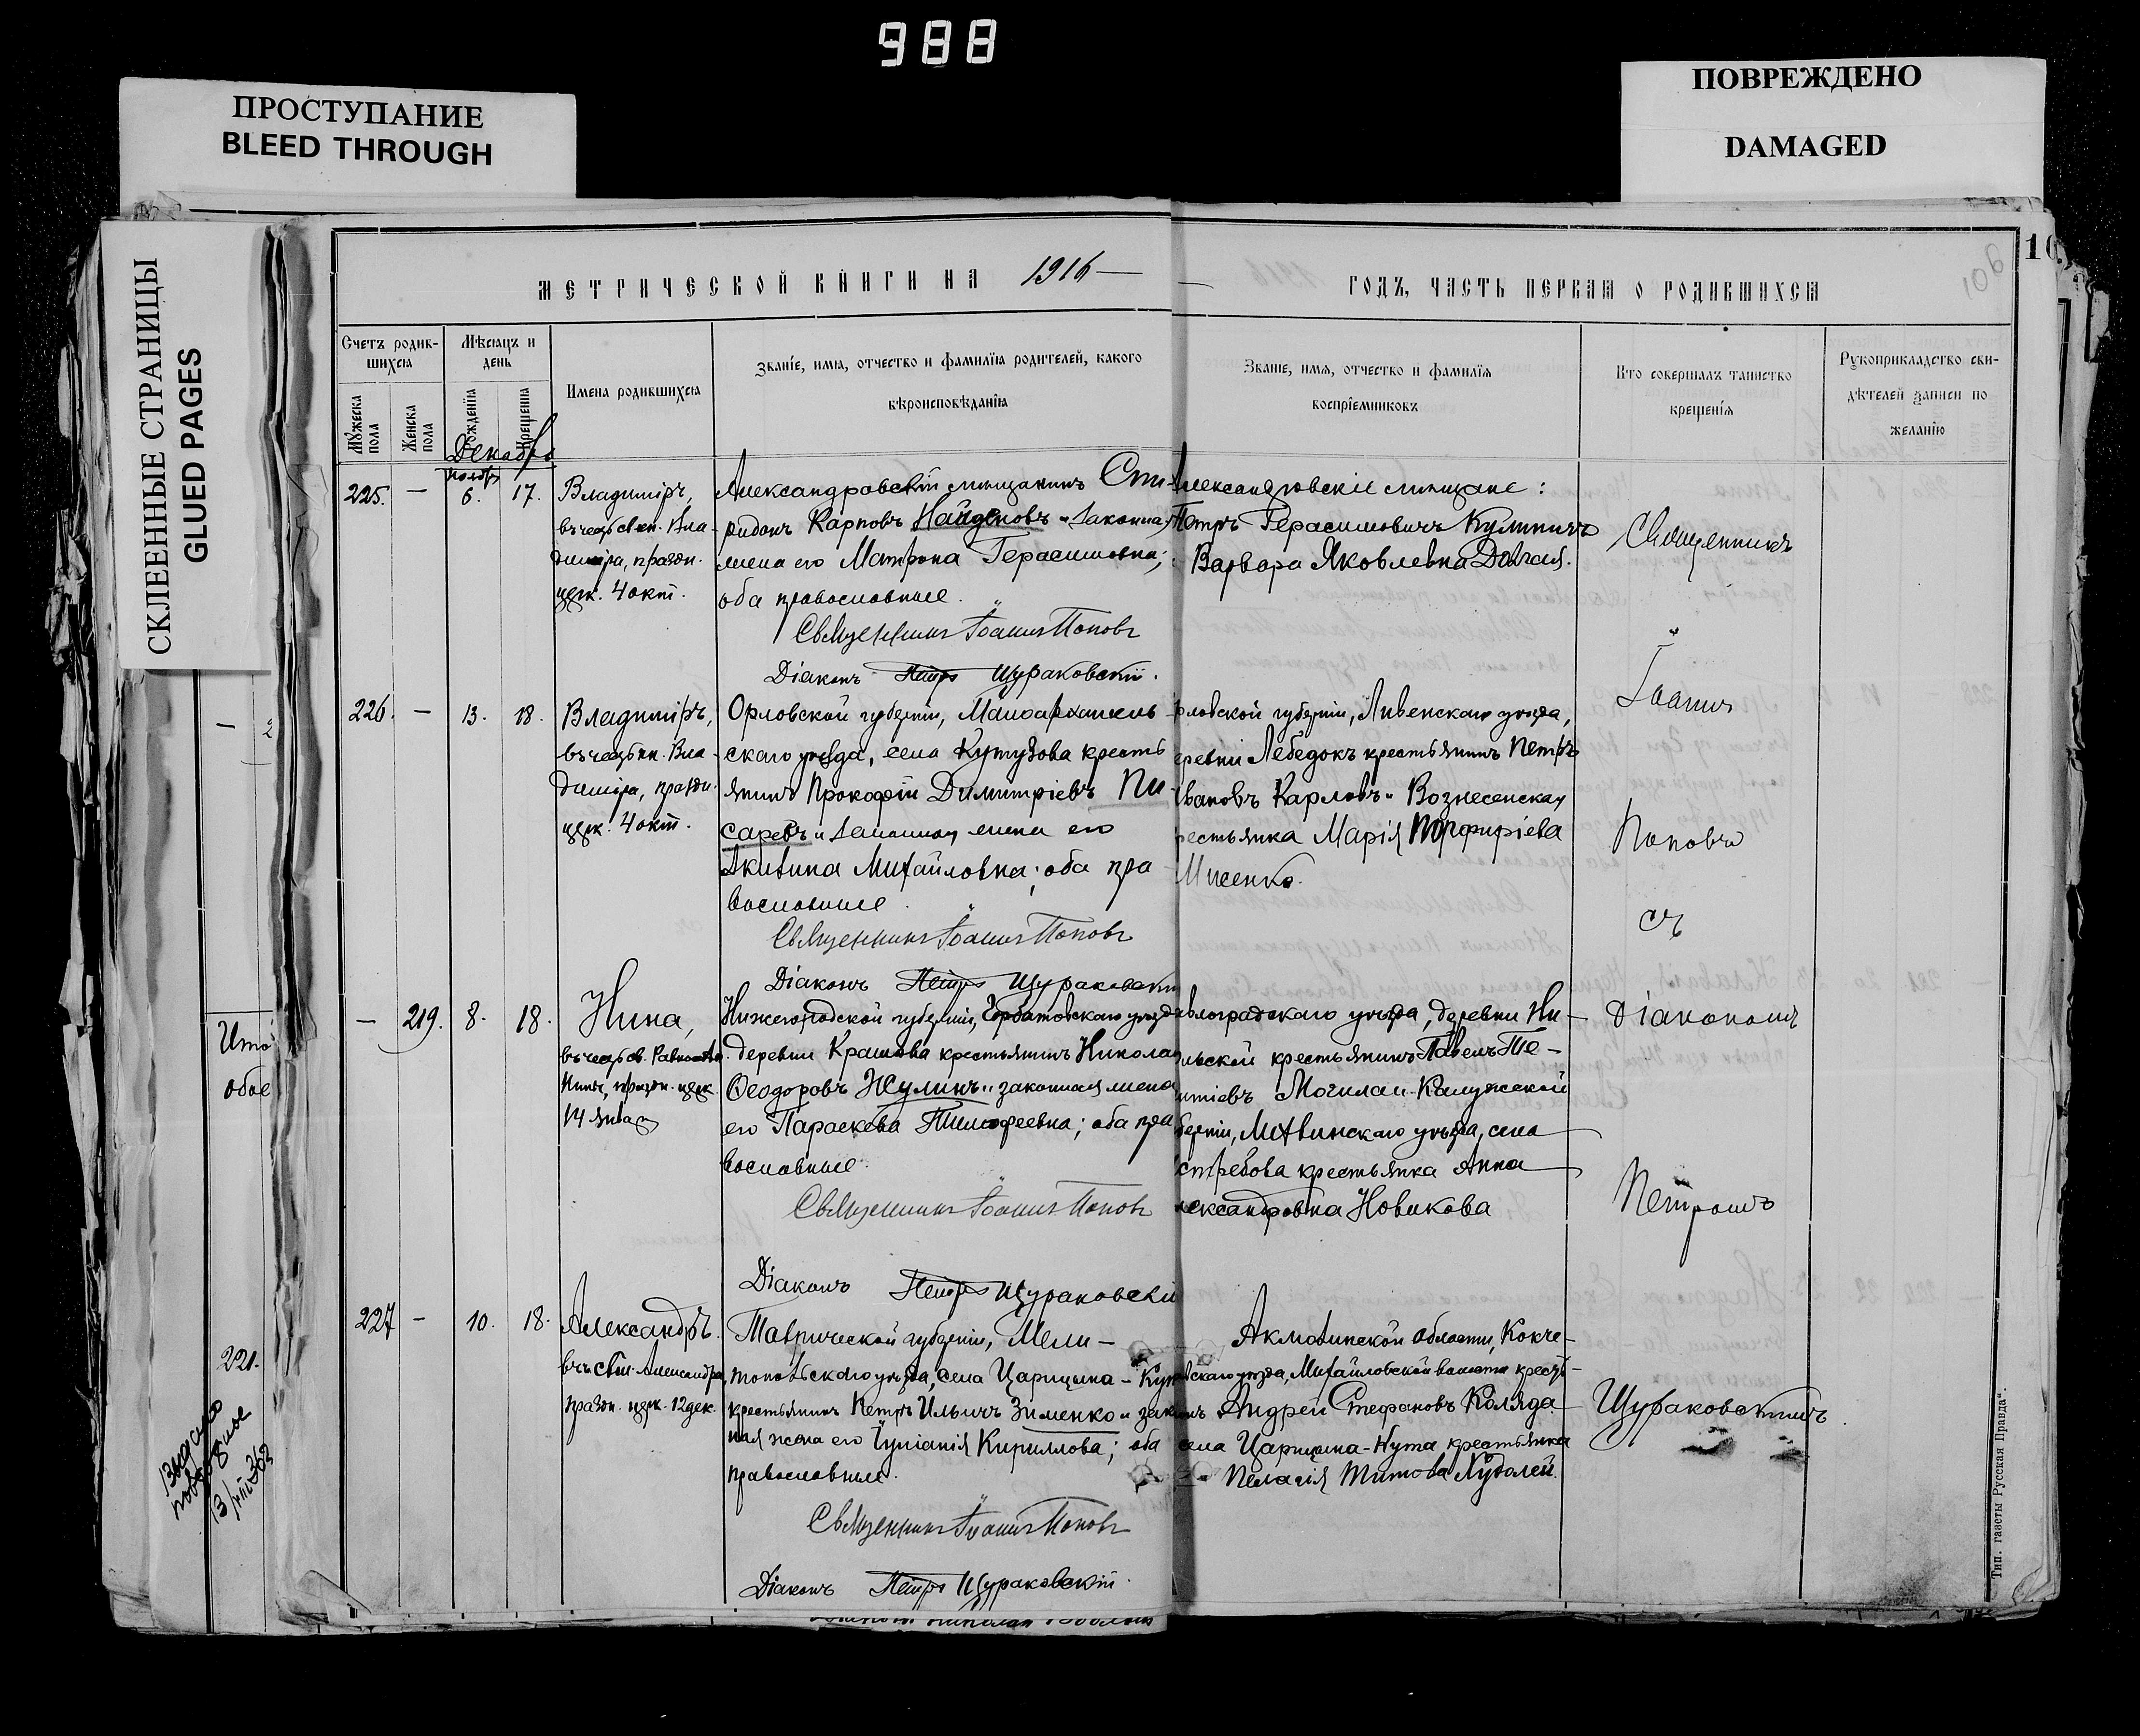 988
ПРОСТУПАНИЕ
BLEED THROUGH
ПОВРЕЖДЕНО
DAMAGED
СКЛЕЕННЫЕ СТРАНИЦЫ
GLUED PAGES
МЕТРИЧЕСКОЙ КНИГИ НА 1916 —
ГОДЪ, ЧАСТЬ ПЕРВАЯ О РОДИВШИХСЯ
10
Счетъ родив-
шихся
Мужеска пола
Женска пола
Мѣсяцъ и
день
Рожденїя
Крещенїя
Имена родившихся
Званїе, имя, отчество и фамилїя родителей, какого
вѣроисповѣданїя
Званїе, имя, отчество и фамилїя
воспрїемниковъ
Кто совершалъ таинство
крещенїя
Рукоприкладство сви-
дѣтелей записи по
желанїю
Декабрь
225. — ноябр 6. 17.
Владиміръ,
въ честь св. кн. Вла-
диміра, праздн.
церк. 4 окт.
Александровскій мѣщанинъ Спи-
ридонъ Карповъ Найденовъ и законная
жена его Матрона Герасимовна;
оба православные.
Священникъ Іоаннъ Поповъ
Діаконъ Петръ Щураковскій.
Александровскіе мѣщане:
Петръ Герасимовичъ
Варвара Яковлевна
226. — 13. 18.
Владиміръ,
въ честь кн. Вла-
диміра, праздн.
церк. 4 окт.
Орловской губерніи, Малоархангель-
скаго уѣзда, села Кутузова кресть
янинъ Прокофій Димитріевъ Пи-
саревъ и законная жена его
Акилина Михайловна; оба пра
вославные.
Священникъ Іоаннъ Поповъ
Діаконъ Петръ Щураковскій
рловской губерніи, Ливенскаго уѣзда,
еревни Лебедокъ крестьянинъ Петръ
Ивановъ Карловъ и Вознесенская
рестьянка Марія Порфиріева
— 219. 8. 18.
Нина,
въ честь св. Равноап.
Нины, праздн. церк.
14 янва
Нижегородской губерніи, Горбатовскаго уѣзд
деревни Крашова крестьянинъ Николай
Ѳеодоровъ Жулинъ и законная жена
его Параскева Тимофеевна; оба пра
вославные.
Священникъ Іоаннъ Поповъ
Діаконъ Петръ Щураковскій
влоградскаго уѣзда, деревни Ни-
ольской крестьянинъ Павелъ Те-
Калужской
берніи, уѣзда, села
стребова крестьянка Анна
лександровна Новикова
227 — 10. 18.
Александръ.
въ ч. св. бл. Александра,
праздн. церк. 12 дек.
Таврической губерніи, Мели-
топольскаго уѣзда, села Царицына-Кут
крестьянинъ Петръ Ильичъ Зименко и закон
ная жена его Іуліанія Кириллова; оба
православные.
Священникъ Іоаннъ Поповъ
Діаконъ Петръ Щураковскій.
Акмолинской области, Кокче-
вскаго уѣзда, Михайловской волости кресть-
инъ Андрей Стефановъ Коляда
села Царицына-Кута крестьянка
Пелагія Титова
Священникъ
Іоаннъ
Поповъ
съ
Діакономъ
Петромъ
Щураковскимъ.
Ито
обое
221.
Тип. газеты Русская Правда".